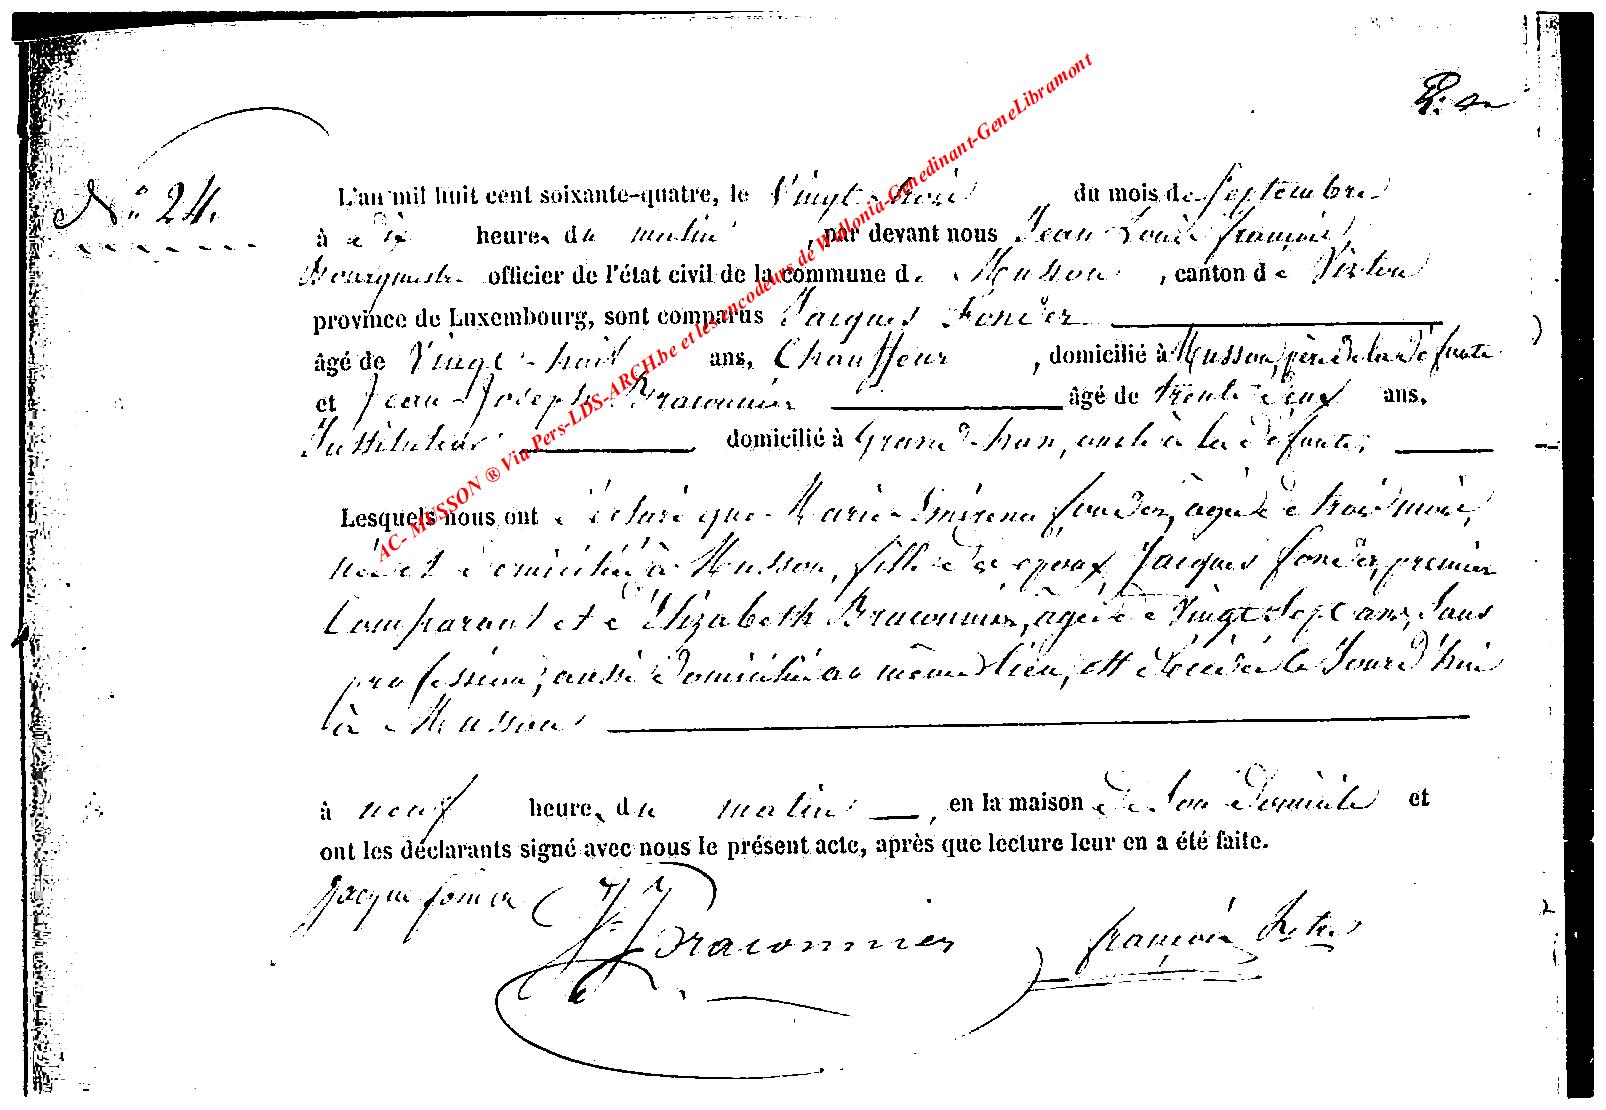 N° 24.
L'an mil huit cent soixante-quatre, le Vingt-trois du mois de Septembre
à dix heures du matin, par devant nous Jean Louis françois,
Bourgmestre officier de l'état civil de la commune de Musson, canton de Virton
province de Luxembourg, sont comparus Jacques Fonder
âgé de Vingt-huit ans, Chauffeur, domicilié à Musson, père de la défunte
et Jean-Joseph Braconnier âgé de trente deux ans,
Instituteur domicilié à Grand han, oncle à la défunte;
Lesquels nous ont déclaré que Marie fonder, agée de trois mois,
née et domiciliée à Musson, fille des époux Jacques fonder, premier
Comparant et d'Elizabeth Braconnier, agée de Vingt Sept ans, Sans
profession, aussi domiciliée au même lieu, est décédée le Jourd'hui
à Musson
à neuf heures du matin, en la maison de Son domicile et
ont les déclarants signé avec nous le présent acte, après que lecture leur en a été faite.
Jacque fonder JJ Braconnier françois
AC- MUSSON ® Via Pers-LDS-ARCH.be et les encodeurs de Wallonia-Genedinant-GeneLibramont